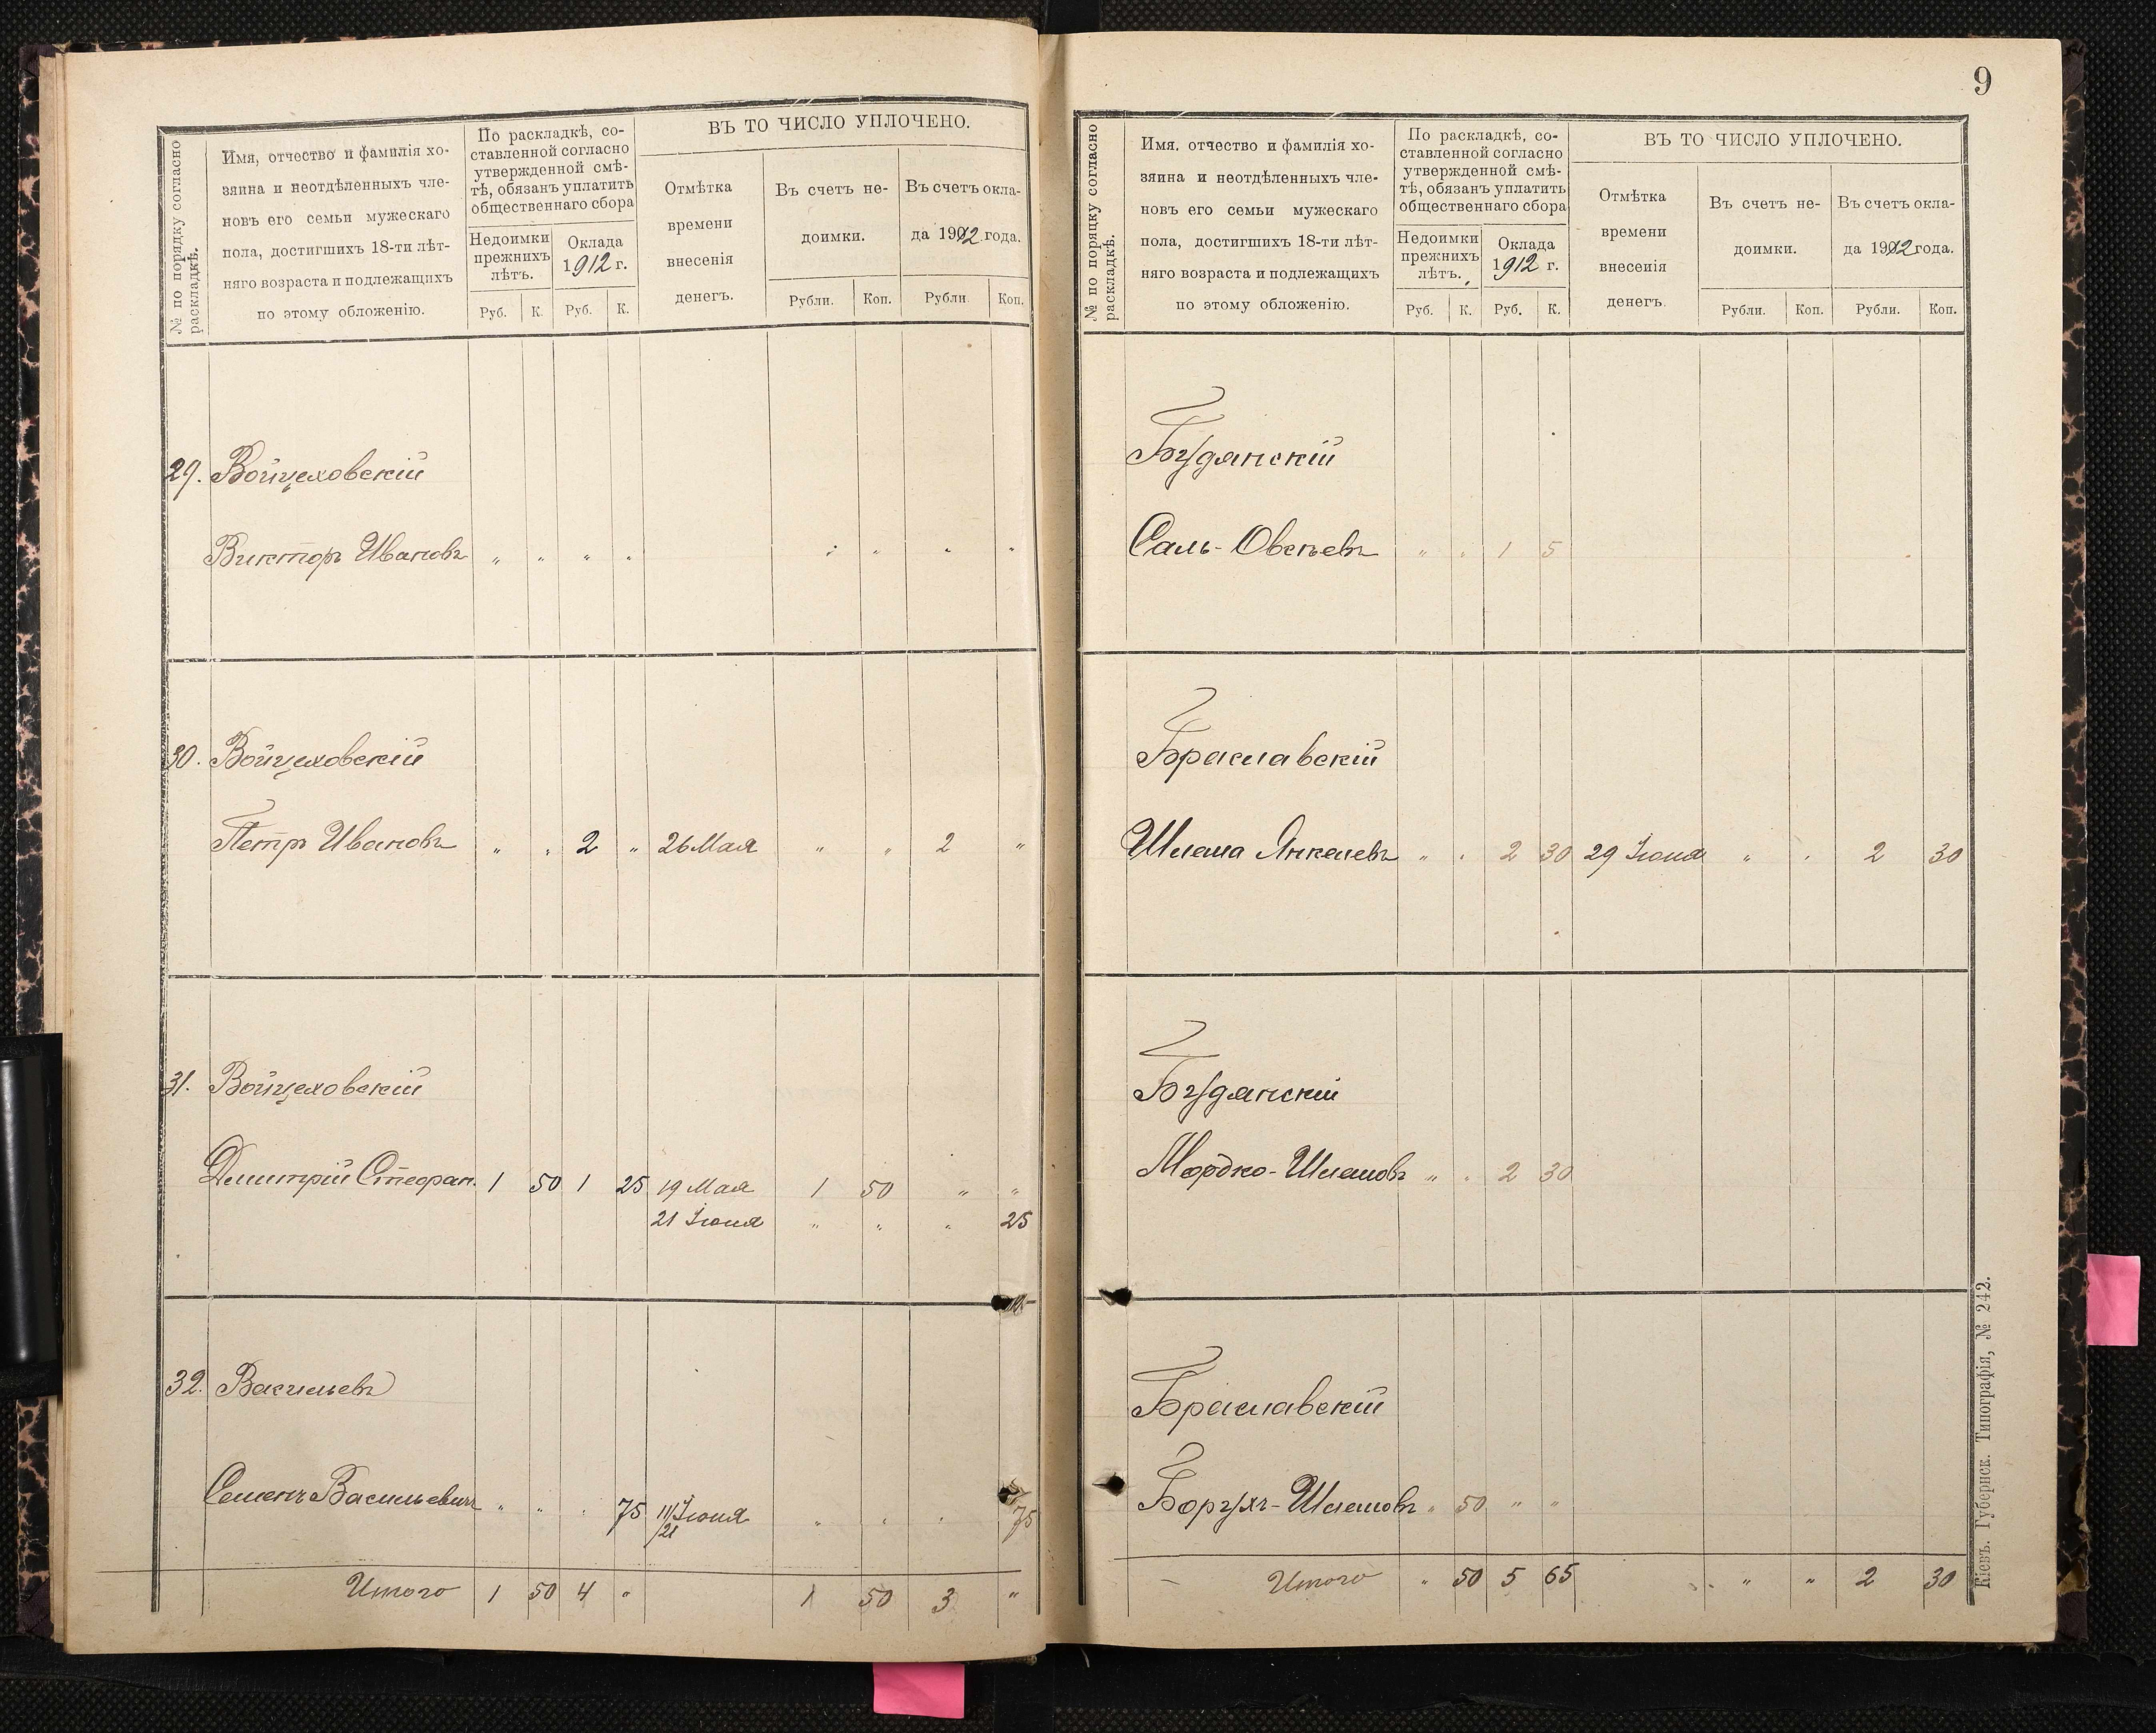 № по порядку согласно раскладкѣ.
Имя, отчество и фамилія хо-
зяина и неотдѣленныхъ чле-
новъ его семьи мужескаго
пола, достигшихъ 18-ти лѣт-
няго возраста и подлежащихъ
по этому обложенію.
По раскладкѣ, со-
ставленной согласно
утвержденной смѣ-
тѣ, обязанъ уплатить
общественнаго сбора
Недоимки
прежнихъ
лѣтъ.
Оклада
1912 г.
Руб. К. Руб. К.
ВЪ ТО ЧИСЛО УПЛОЧЕНО.
Отмѣтка
времени
внесенія
денегъ.
Въ счетъ не-
доимки.
Въ счетъ окла-
да 1912 года.
Рубли. Коп. Рубли. Коп.
29. Войцеховскій
Викторъ Ивановъ " " " " " " " "
30. Войцеховскій
Петръ Ивановъ " " 2 " 26 Мая " " 2 "
31. Войцеховскій
Дмитрій Стефан. 1 50 1 25 19 Мая 1 50 " "
21 Іюня " " " 25
32. Васильевъ
Семенъ Васильевичъ " " " 75 11/21 Іюня " " " 75
Итого 1 50 4 " 1 50 3 "
9
№ по порядку согласно раскладкѣ.
Имя, отчество и фамилія хо-
зяина и неотдѣленныхъ чле-
новъ его семьи мужескаго
пола, достигшихъ 18-ти лѣт-
няго возраста и подлежащихъ
по этому обложенію.
По раскладкѣ, со-
ставленной согласно
утвержденной смѣ-
тѣ, обязанъ уплатить
общественнаго сбора
Недоимки
прежнихъ
лѣтъ.
Оклада
1912 г.
Руб. К. Руб. К.
ВЪ ТО ЧИСЛО УПЛОЧЕНО.
Отмѣтка
времени
внесенія
денегъ.
Въ счетъ не-
доимки.
Въ счетъ окла-
да 1912 года.
Рубли. Коп. Рубли. Коп.
Буданскій
Саль- " " 1 5
Браславскій
Шлема Янкелевъ " " 2 30 29 Іюня " " 2 30
Буданскій
Мордко-Шлемовъ " " 2 30
Браславскій
Борухъ-Шлемовъ " 50 " "
Итого " 50 5 65 " " 2 30
Кіевъ. Губернск. Типографія, № 242.